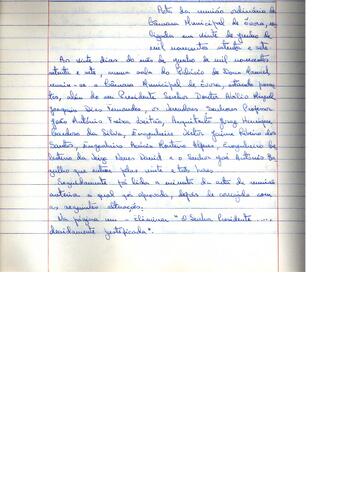 Acta da reunião ordinária da
Câmara Municipal de Évora, rea
lizada em vinte de Junho de
mil novecentos setenta e sete
Aos vinte dias do mês de Junho de mil novecentos
setenta e sete, numa sala do Palácio de Dom Manuel
reuniu-se a Câmara Municipal de Évora, estando presen
tes, além do seu Presidente Senhor Doutor Abílio Miguel
Joaquim Dias Fernandes, os Vereadores Senhores Professor
João António Freixa Leitão, Arquitecto Jorge Henrique
Cardoso da Silva, Engenheiro Victor Jaime Ribeiro dos
Santos, Engenheiro Acácio Monteiro Alferes, Engenheiro
David e o Senhor José António
que entrou pelas vinte e três horas
Seguidamente foi lida a minuta da acta da reunião
anterior a qual foi aprovada, depois de corrigida com
as seguintes alterações:
Na página um - Eliminar "O Senhor Presidente ....,
devidamente justificada".